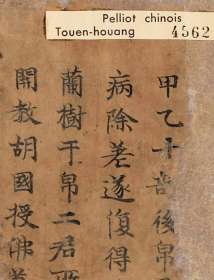 Pelliot chinois
Touen-houang 4562
甲乙十後帛
病除差遂復得
蘭樹干帛二君
開教胡國授佛